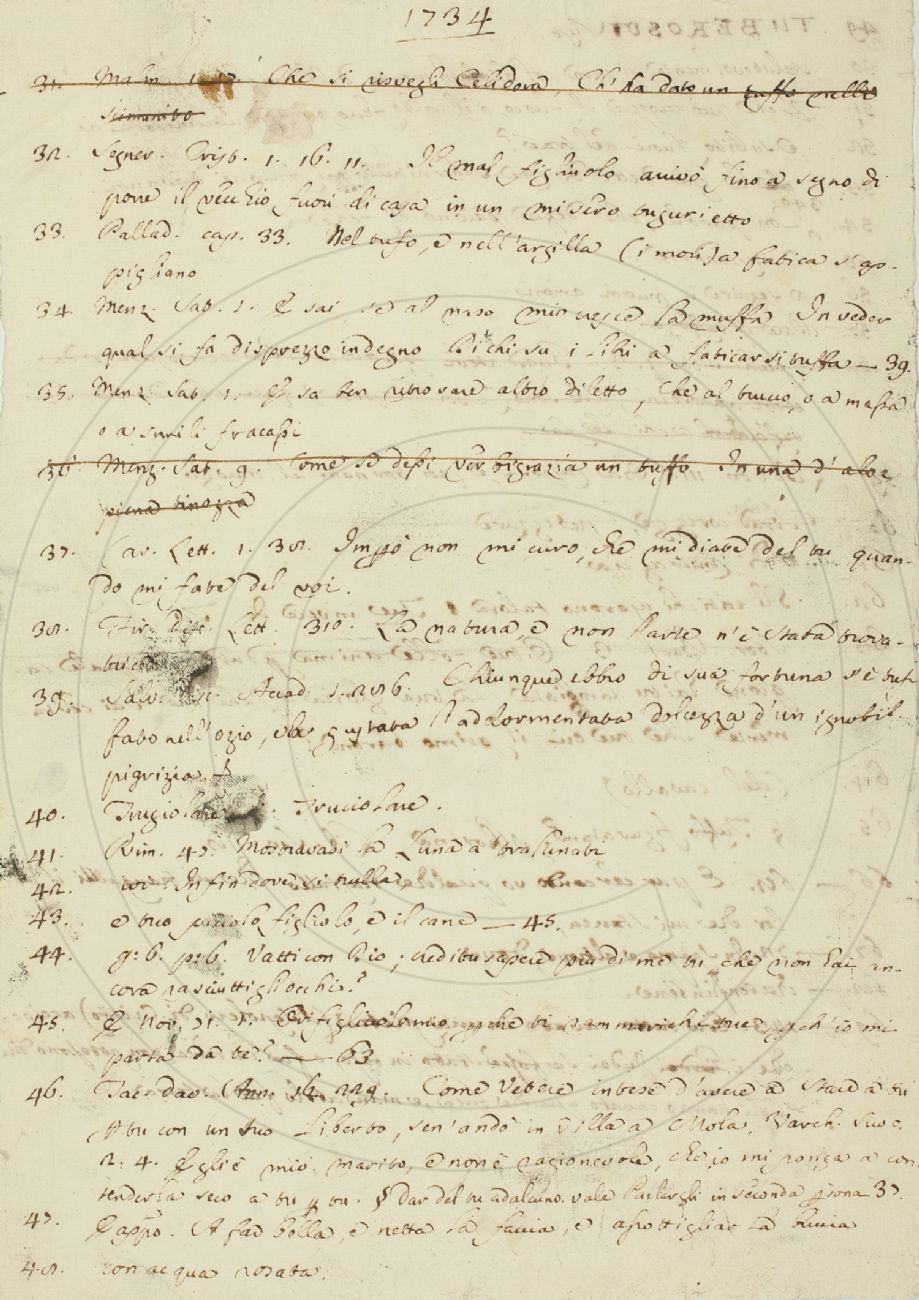 1734
31. Malm. 1. Che si risvegli Celidora, Ch' ha dato un tuffo nello
scimunito
32. Segner. Crist. 1. 16. 11. Il mal figliuolo arrivò fino a segno di
porre il vecchio fuori di casa in un misero tugurietto
33. Pallad. cap. 33. Nel tufo, e nell'argilla (i mori) a fatica s'ap-
pigliano
34. Menz. Sat. 1. E sai se al naso mi cresce la muffa In veder
qual si fa disprezzo indegno Di chi su i libri a faticar si tuffa — 39.
35. Menz. Sat. 1. E sa ben ritrovare altro diletto, Che al trucco, o a
o a simili fracassi
36. Menz. Sat. 9. Come se dessi verbigrazia un tuffo In una d'aloe
piena tinozza
37. Car. Lett. 1. 38. non mi curo, che mi diate del tu quan-
do mi fate del voi.
38. Fir. Lett. 310. La natura, e non l'arte n'è stata trova-
trice
39. Salv. Accad. 1. 286. Chiunque ebbro di sua fortuna s'è tuf-
fato nell'ozio, ebbe gustata l'addormentata dolcezza d'un ignobil
pigrizia.
40. Truciolare.
41. Rim. 47. Mostravasi la Luna a
42. ivi. Infin dove si trulla
43. e tuo picciolo figliolo, e il cane — 45.
44. g: 6. p: 6. Vatti con Dio; credi tu sapere più di me tu, che non hai an-
cora rasciutti gli occhi?
45. E Nov. 31. figliuolo mio, che ti rammarichi tue, ch'io mi
parta da te? — 63
46. Tac. Dav. Ann. 16. 229. Come Vetere intese d'avere a stare a tu
tu con un suo Liberto, sen'andò in villa a Mola. Varch. Suoc.
2. 4. Egli è mio marito, e non è ragionevole, ch'io mi ponga a con
tenderla seco a tu tu. § Dar del tu ad alcuno. vale Parlargli in seconda 37.
47. A far bella, e netta la faccia, e assottigliar la buccia
48. con acqua rosata.